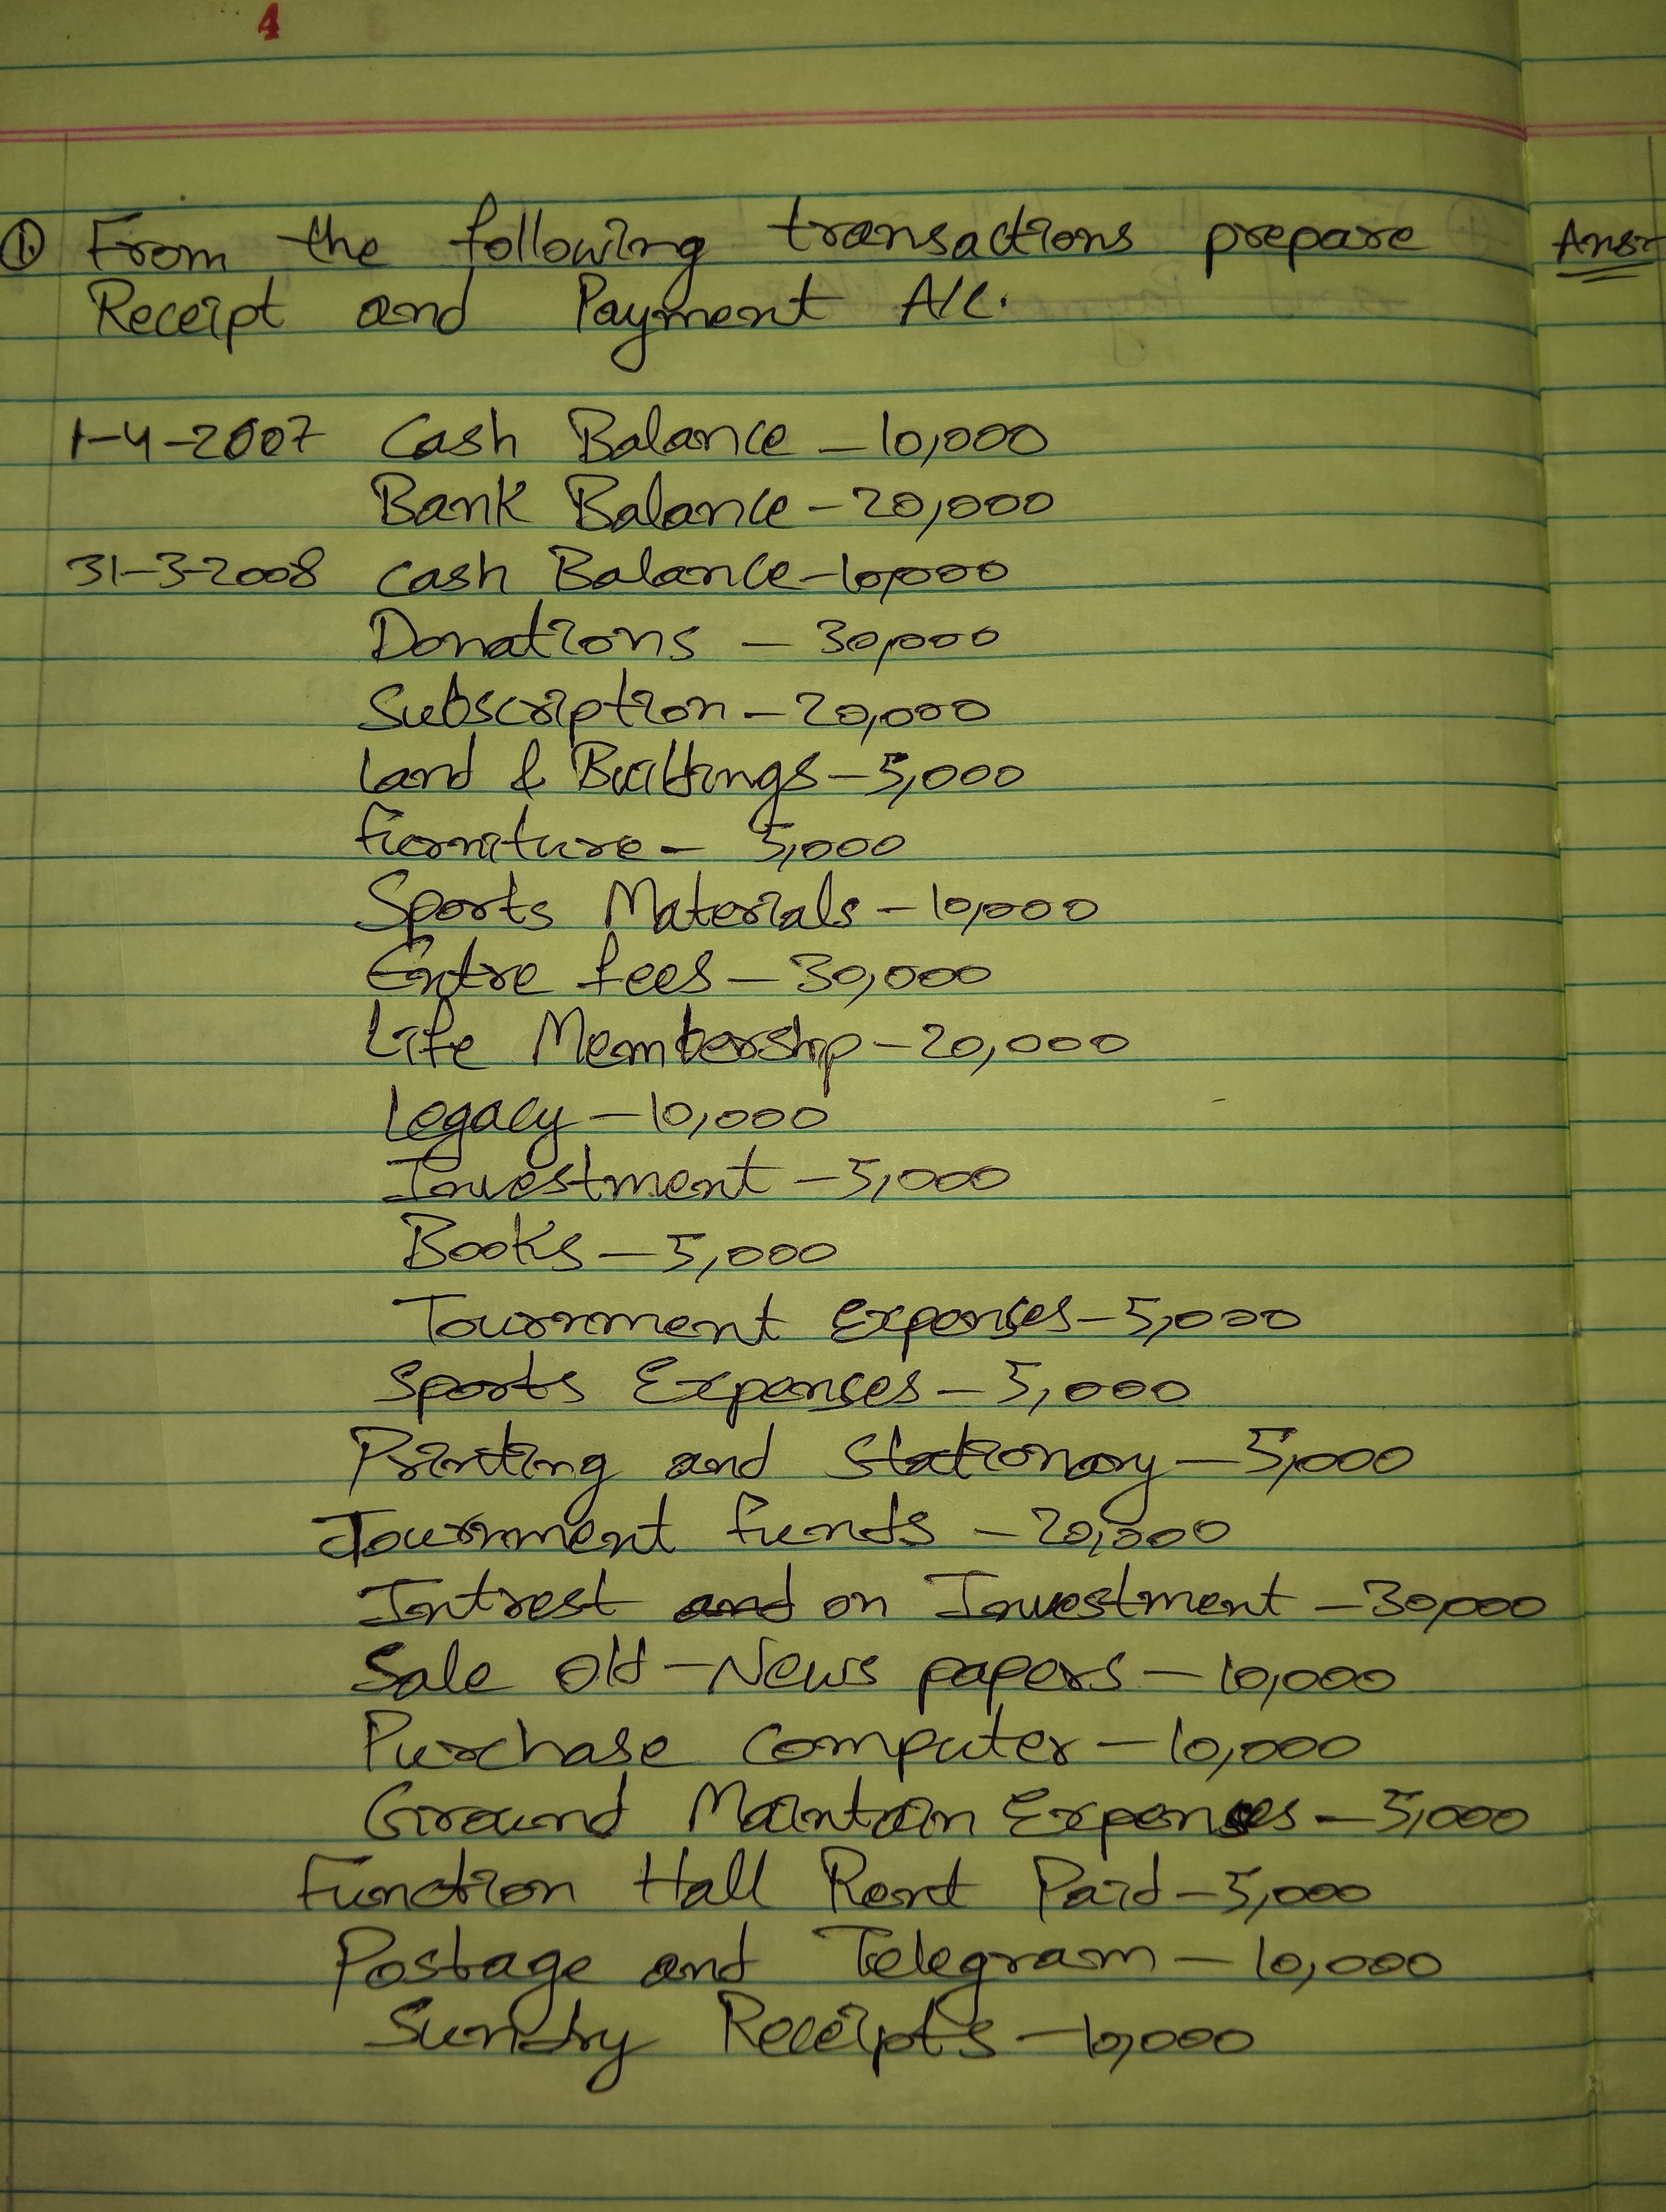 4
① From the following transactions prepare Ans:
Receipt and Payment A/c.
1-4-2007 Cash Balance - 10,000
Bank Balance - 20,000
31-3-2008 Cash Balance - 10,000
Donations - 30,000
Subscription - 20,000
Land & Buildings - 5,000
furniture - 5,000
Sports Materials - 10,000
Entre fees - 30,000
Life Membership - 20,000
Legacy - 10,000
Investment - 5,000
Books - 5,000
Tournment Expenses - 5,000
Sports Expenses - 5,000
Printing and Stationary - 5,000
Tournment funds - 20,000
Intrest and on Investment - 30,000
Sale old - News papers - 10,000
Purchase Computer - 10,000
Ground Maintain Expenses - 5,000
Function Hall Rent Paid - 5,000
Postage and Telegram - 10,000
Sundry Receipts - 10,000